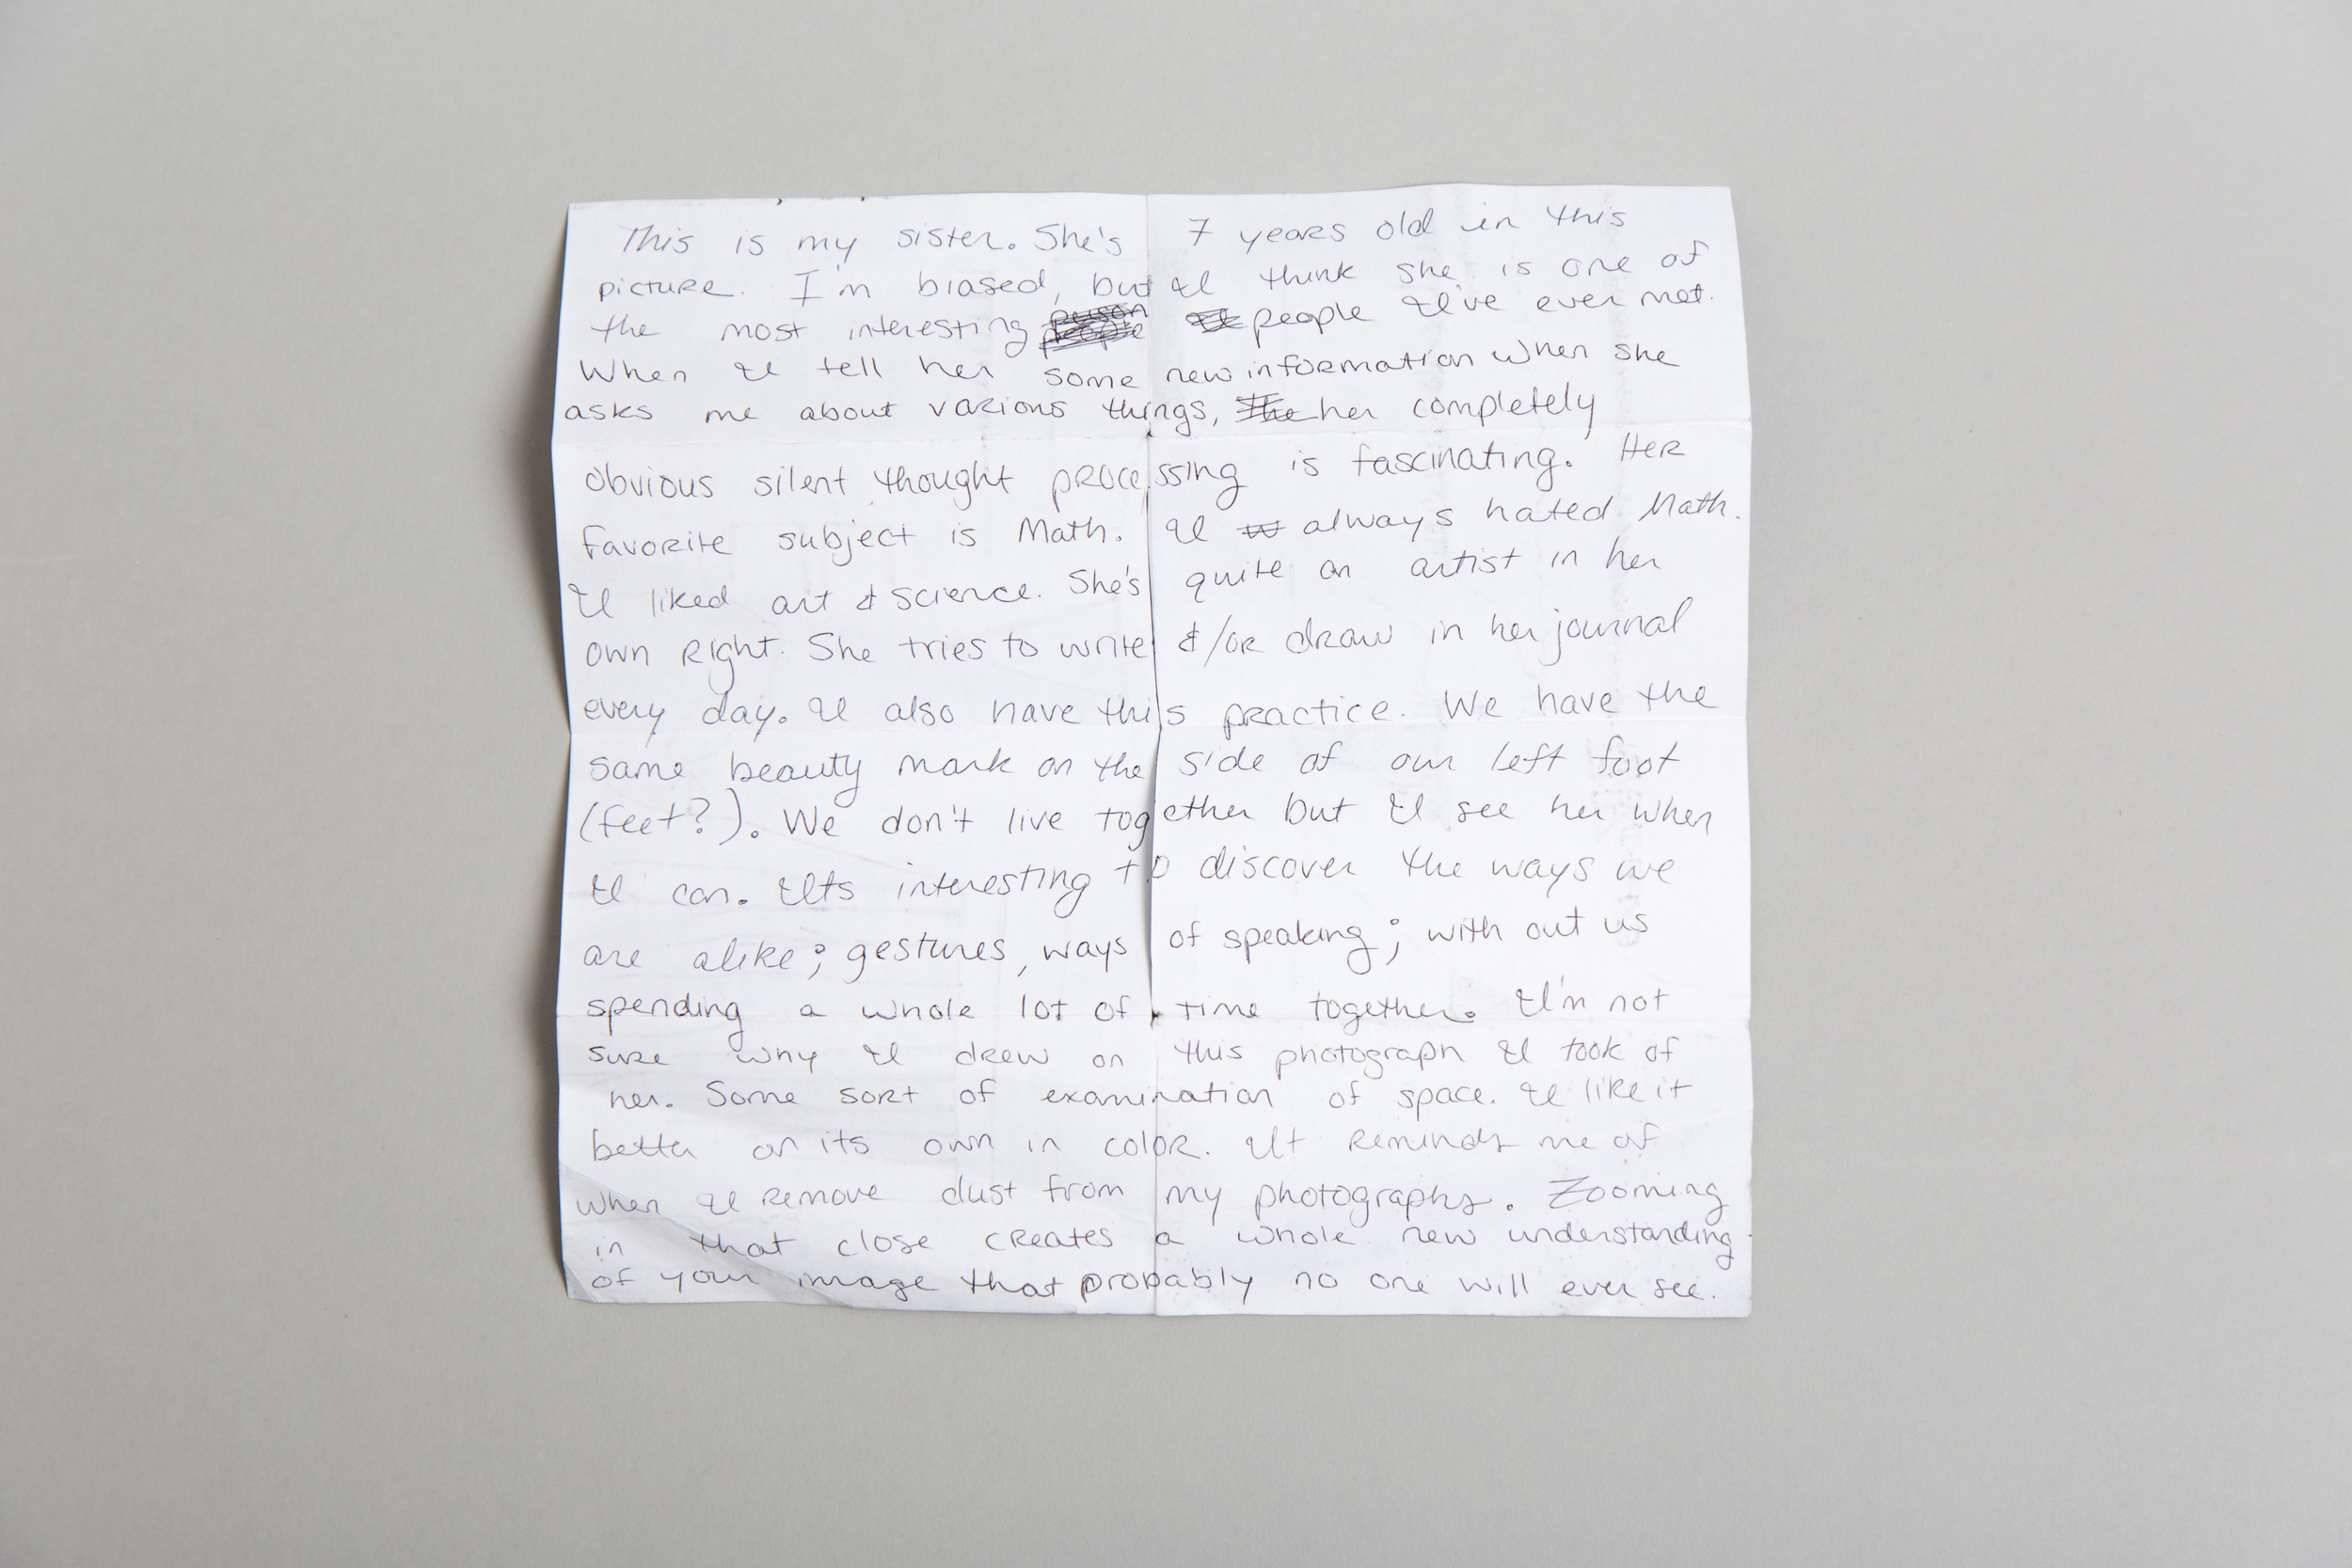 This is my sister. She's 7 years old in this
picture. I'm biased, but I think she is one of
the most interesting people I've ever met.
When I tell her some new information when she
asks me about various things, her completely
obvious silent thought processing is fascinating. Her
favorite subject is Math. I always hated Math.
I liked art & science. She's quite an artist in her
own right. She tries to write &/or draw in her journal
every day. I also have this practice. We have the
same beauty mark on the side of our left foot
(feet?). We don't live together but I see her when
I can. Its interesting to discover the ways we
are alike; gestures, ways of speaking; with out us
spending a whole lot of time together. I'm not
sure why I drew on this photograph I took of
her. Some sort of examination of space. I like it
better on its own in color. It reminds me of
when I remove dust from my photographs. Zooming
in that close creates a whole new understanding
of your image that probably no one will ever see.